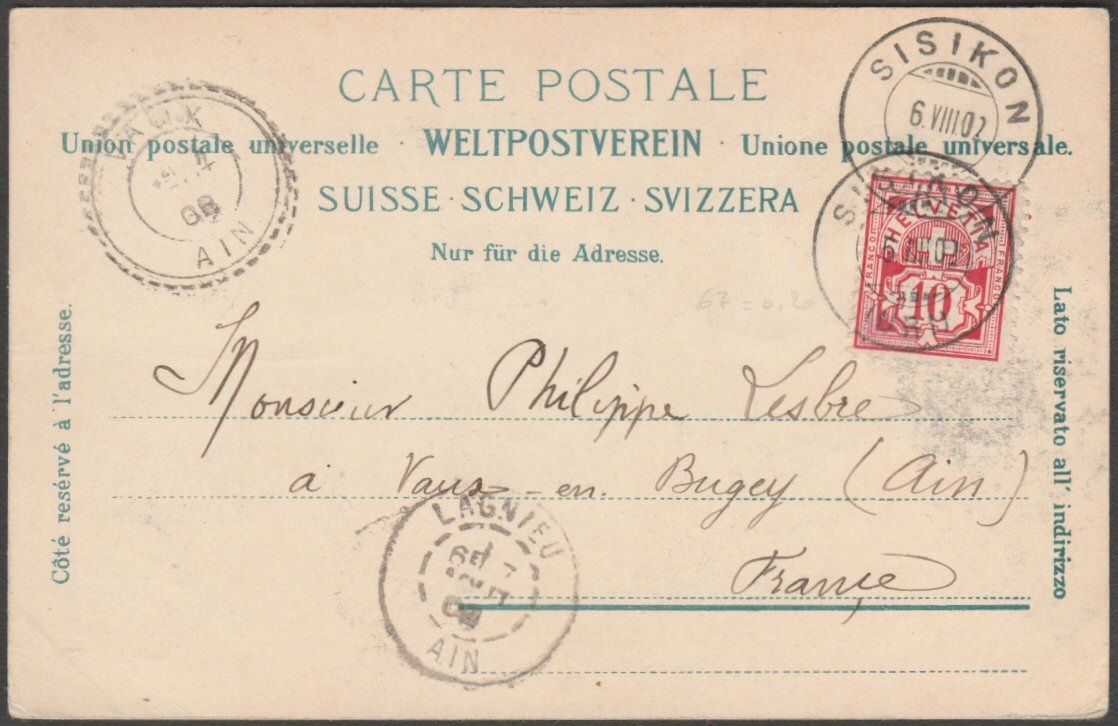 CARTE POSTALE
Union postale universelle · WELTPOSTVEREIN · Unione postale universale.
SUISSE · SCHWEIZ · SVIZZERA
Nur für die Adresse.
SISIKON
6.VIII.02
SISIKON
HELVETIA
FRANCO
FRANCO
10
VAUX
AIN
67 = 0,20
Côté resérvé à l'adresse.
Lato riservato all' indirizzo
Monsieur Philippe Lesbre
à Vaux-en-Bugey (Ain)
France
LAGNIEU
AIN